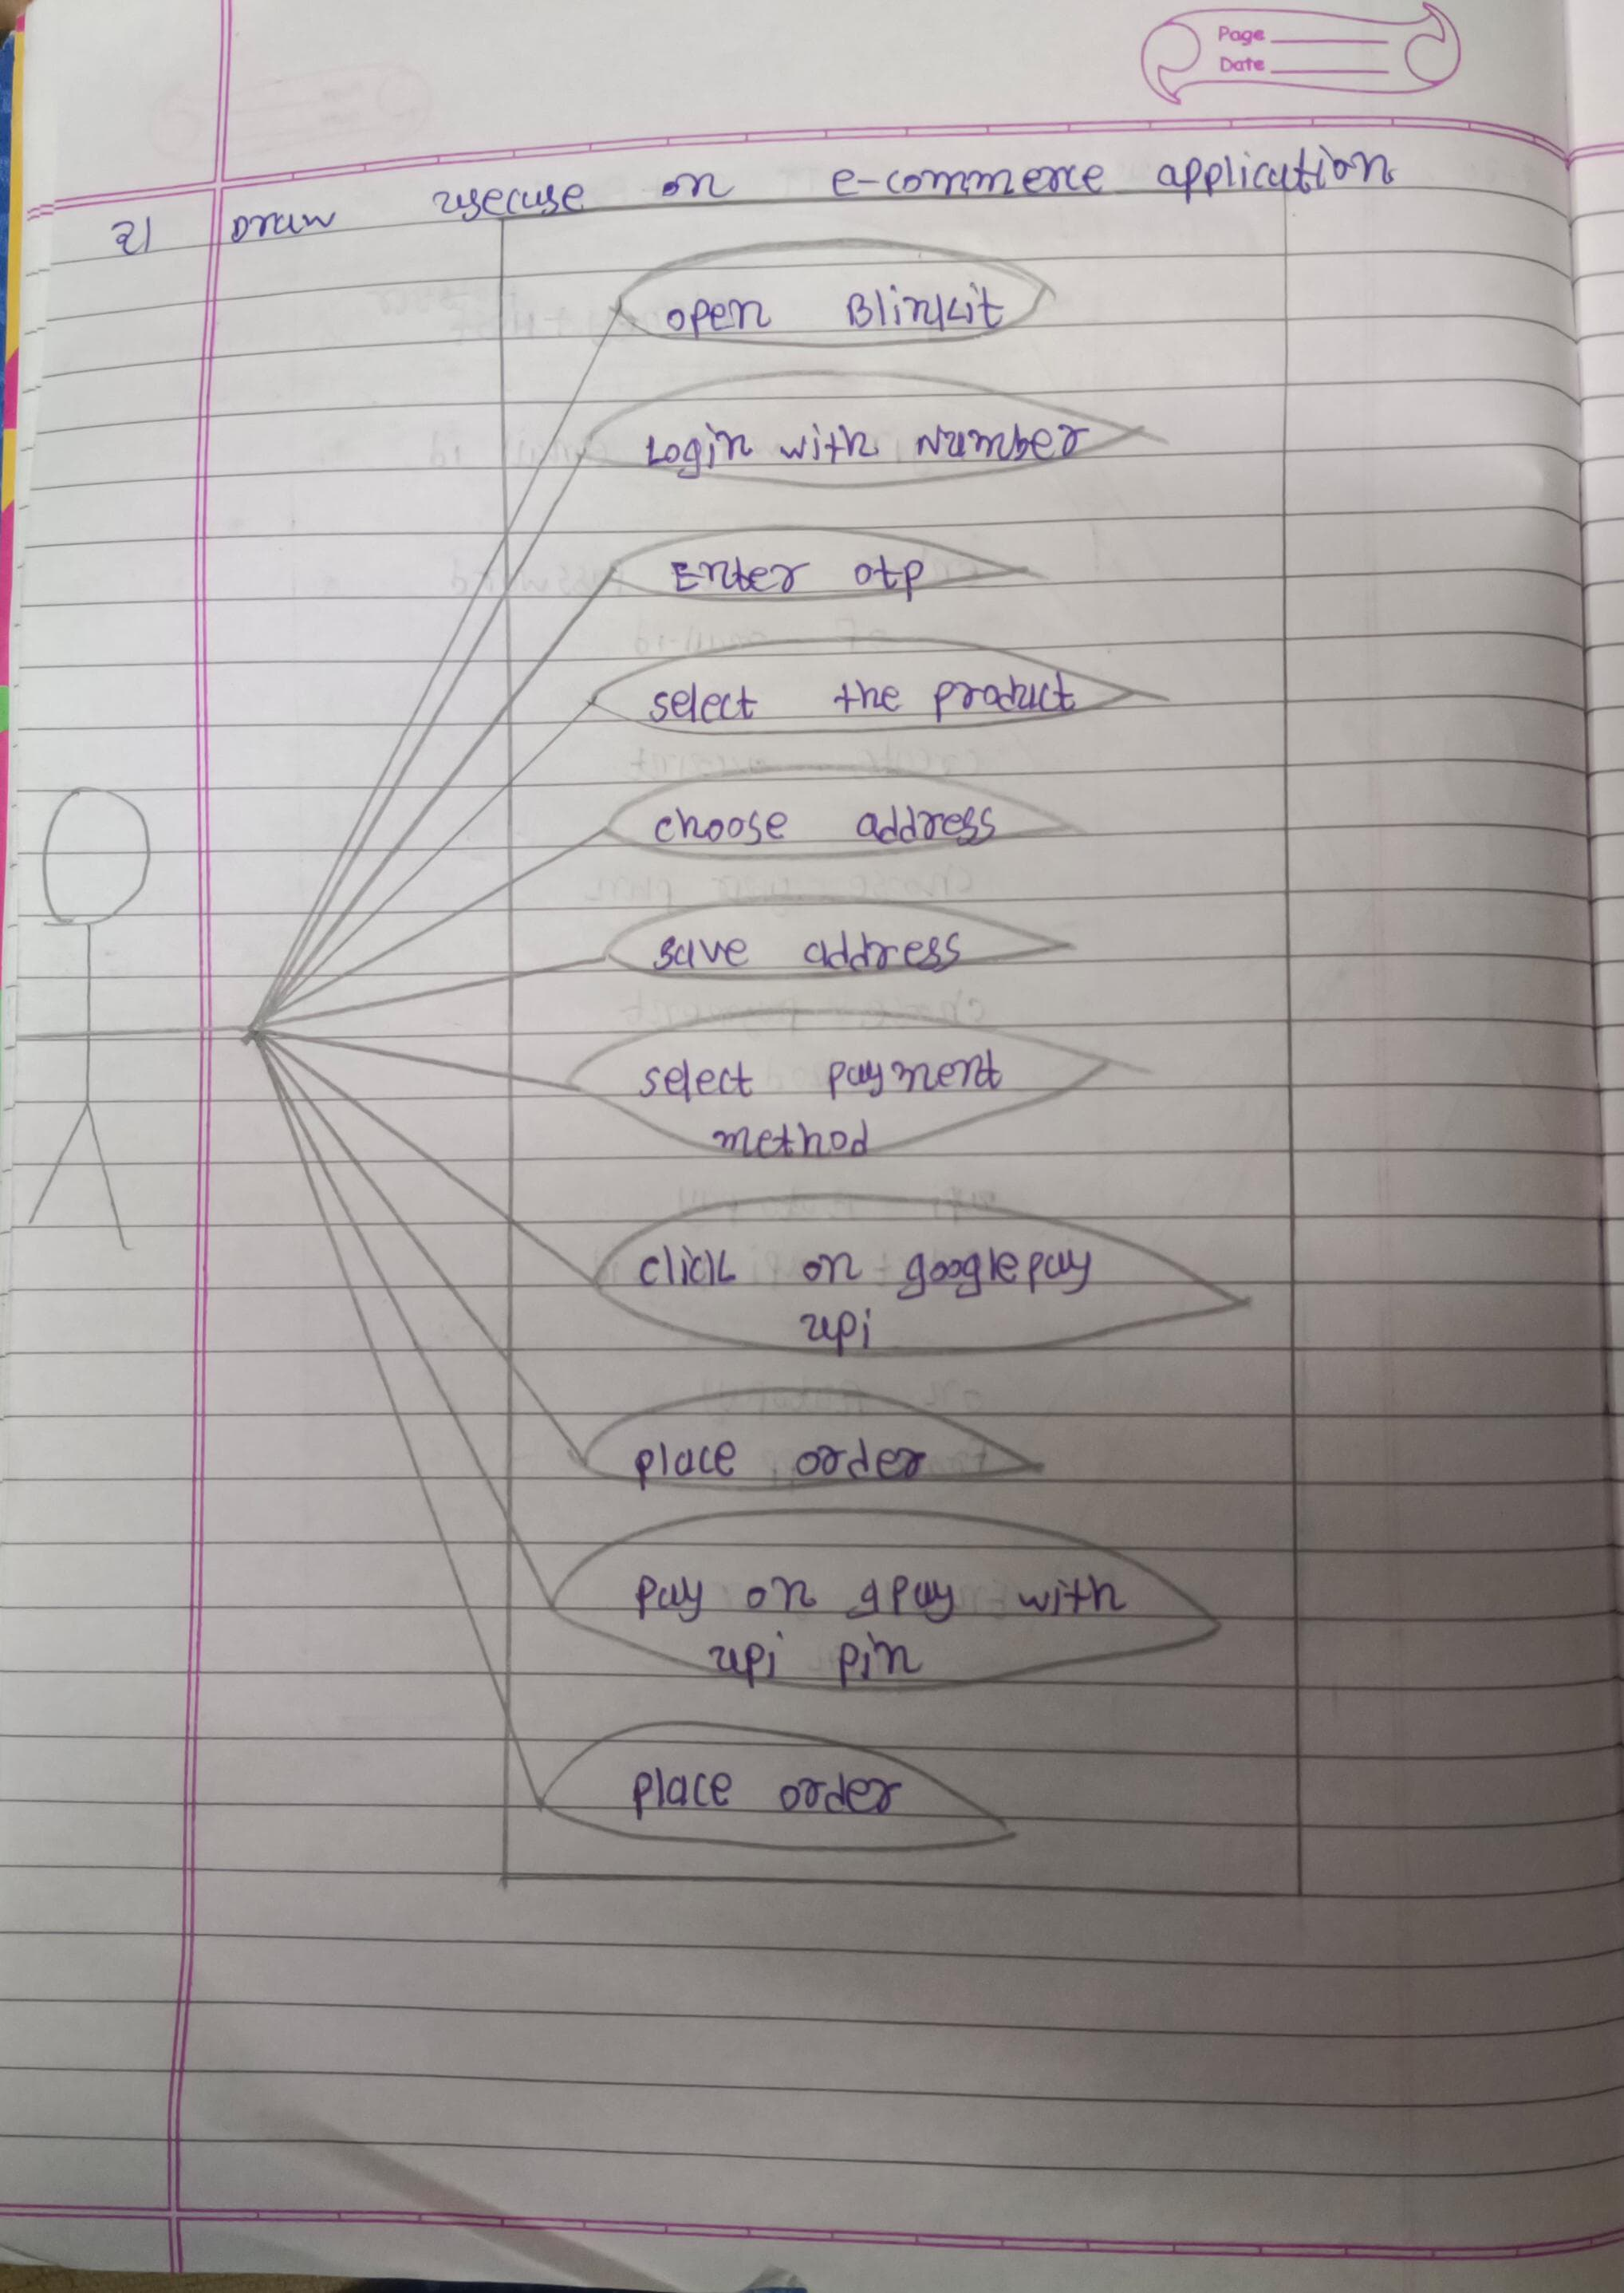 Page
Date
21 Draw usecase on e-commerce application
open Blinkit
Login with Number
Enter otp
select the product
choose address
save address
select payment
method
click on googlepay
upi
place order
pay on gpay with
upi pin
place order